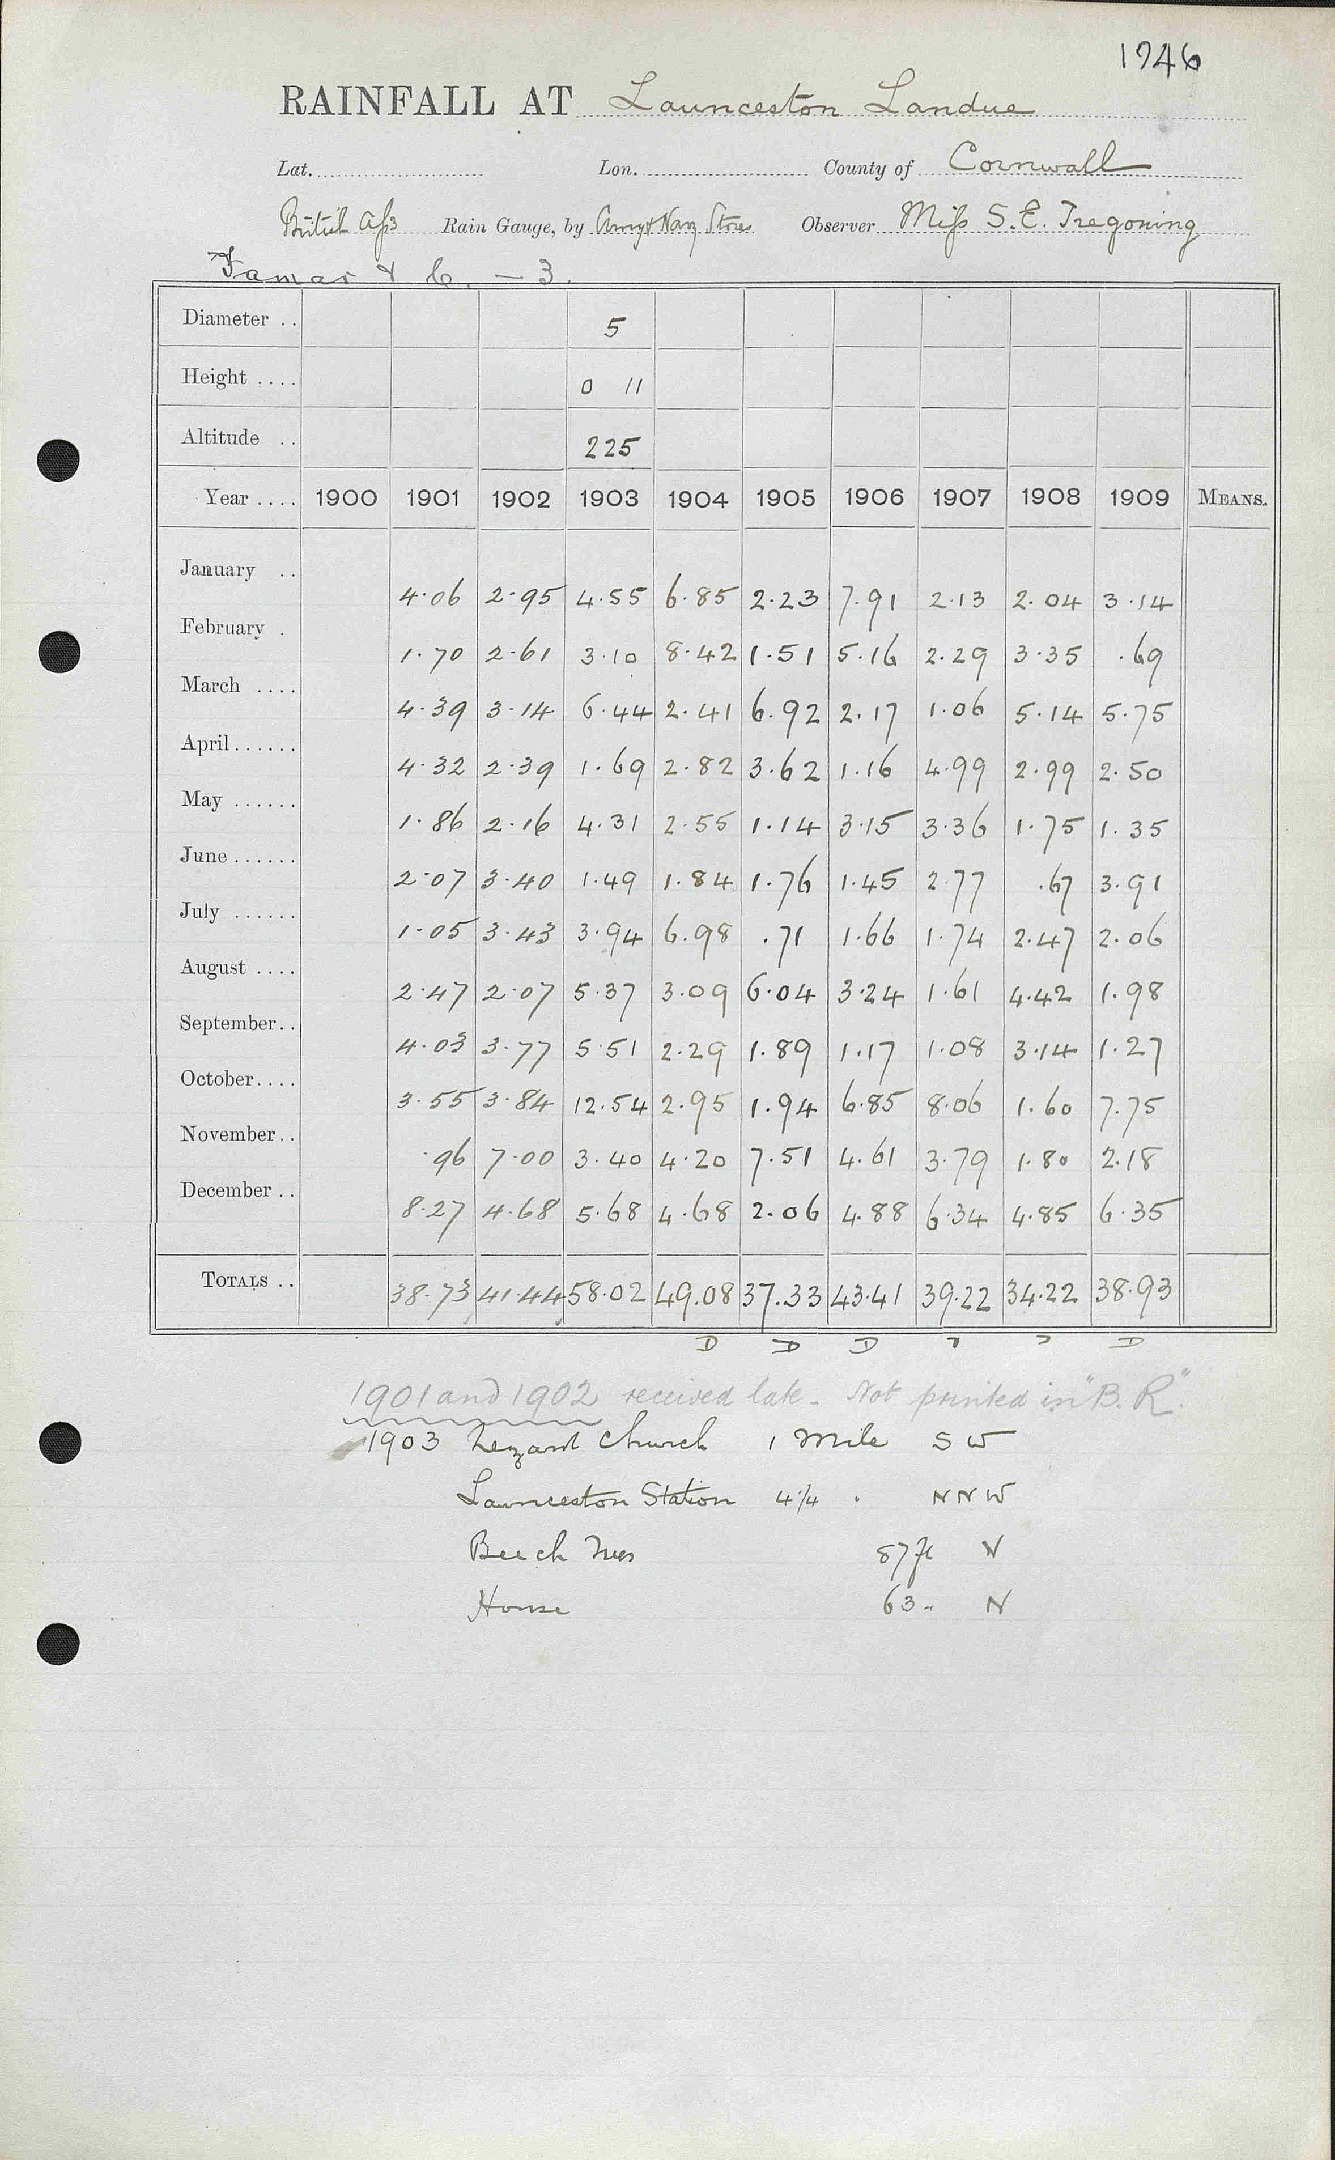 1946
RAINFALL AT Launceston Landue
Lat. Lon. County of Cornwall
British Ass Rain Gauge, by Army & Navy Stores Observer Miss S. E. Tregoning
Tamar & C. — 3.
Diameter .. 5
Height .... 0 11
Altitude .. 225
Year .... 1900 1901 1902 1903 1904 1905 1906 1907 1908 1909 MEANS.
January .. 4.06 2.95 4.55 6.85 2.23 7.91 2.13 2.04 3.14
February . 1.70 2.61 3.10 8.42 1.51 5.16 2.29 3.35 .69
March .... 4.39 3.14 6.44 2.41 6.92 2.17 1.06 5.14 5.75
April...... 4.32 2.39 1.69 2.82 3.62 1.16 4.99 2.99 2.50
May ...... 1.86 2.16 4.31 2.55 1.14 3.15 3.36 1.75 1.35
June ...... 2.07 3.40 1.49 1.84 1.76 1.45 2.77 .67 3.91
July ...... 1.05 3.43 3.94 6.98 .71 1.66 1.74 2.47 2.06
August .... 2.47 2.07 5.37 3.09 6.04 3.24 1.61 4.42 1.98
September.. 4.03 3.77 5.51 2.29 1.89 1.17 1.08 3.14 1.27
October.... 3.55 3.84 12.54 2.95 1.94 6.85 8.06 1.60 7.75
November.. .96 7.00 3.40 4.20 7.51 4.61 3.79 1.80 2.18
December .. 8.27 4.68 5.68 4.68 2.06 4.88 6.34 4.85 6.35
TOTALS .. 38.73 41.44 58.02 49.08 37.33 43.41 39.22 34.22 38.93
D D D D D D
1901 and 1902 received late. Not printed in "B. R."
1903 Lezant Church 1 Mile S W
Launceston Station 4 1/4 " N N W
Beech Trees 87 ft N
House 63 " N